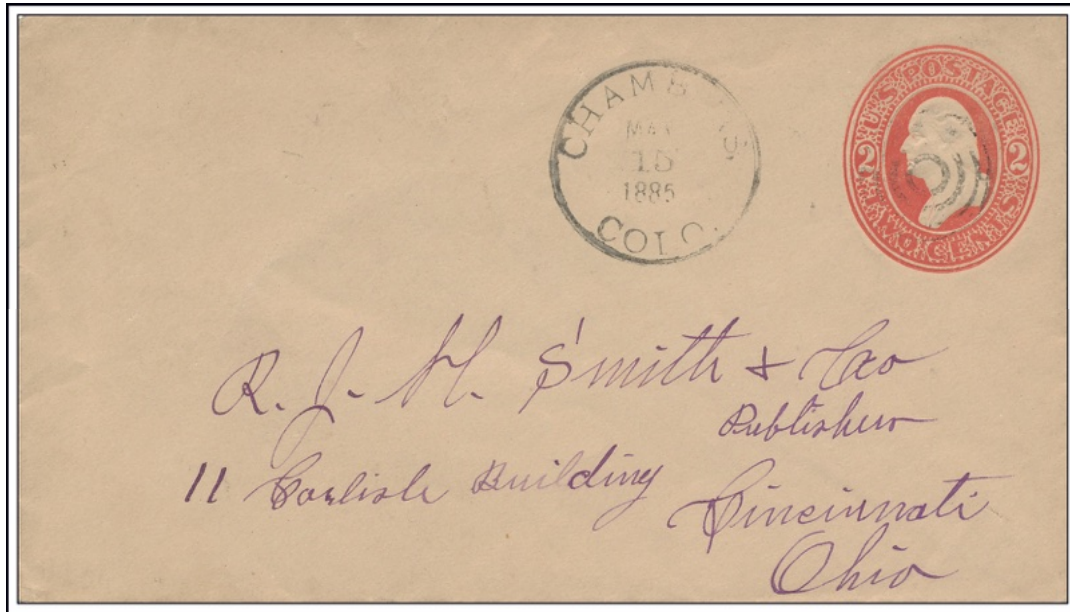 CHAMBERS
MAY
15
1885
COLO.
U.S. POSTAGE
2 2
TWO CENTS
R. J. H. Smith & Co
Publishers
11 Carlisle Building
Cincinnati
Ohio